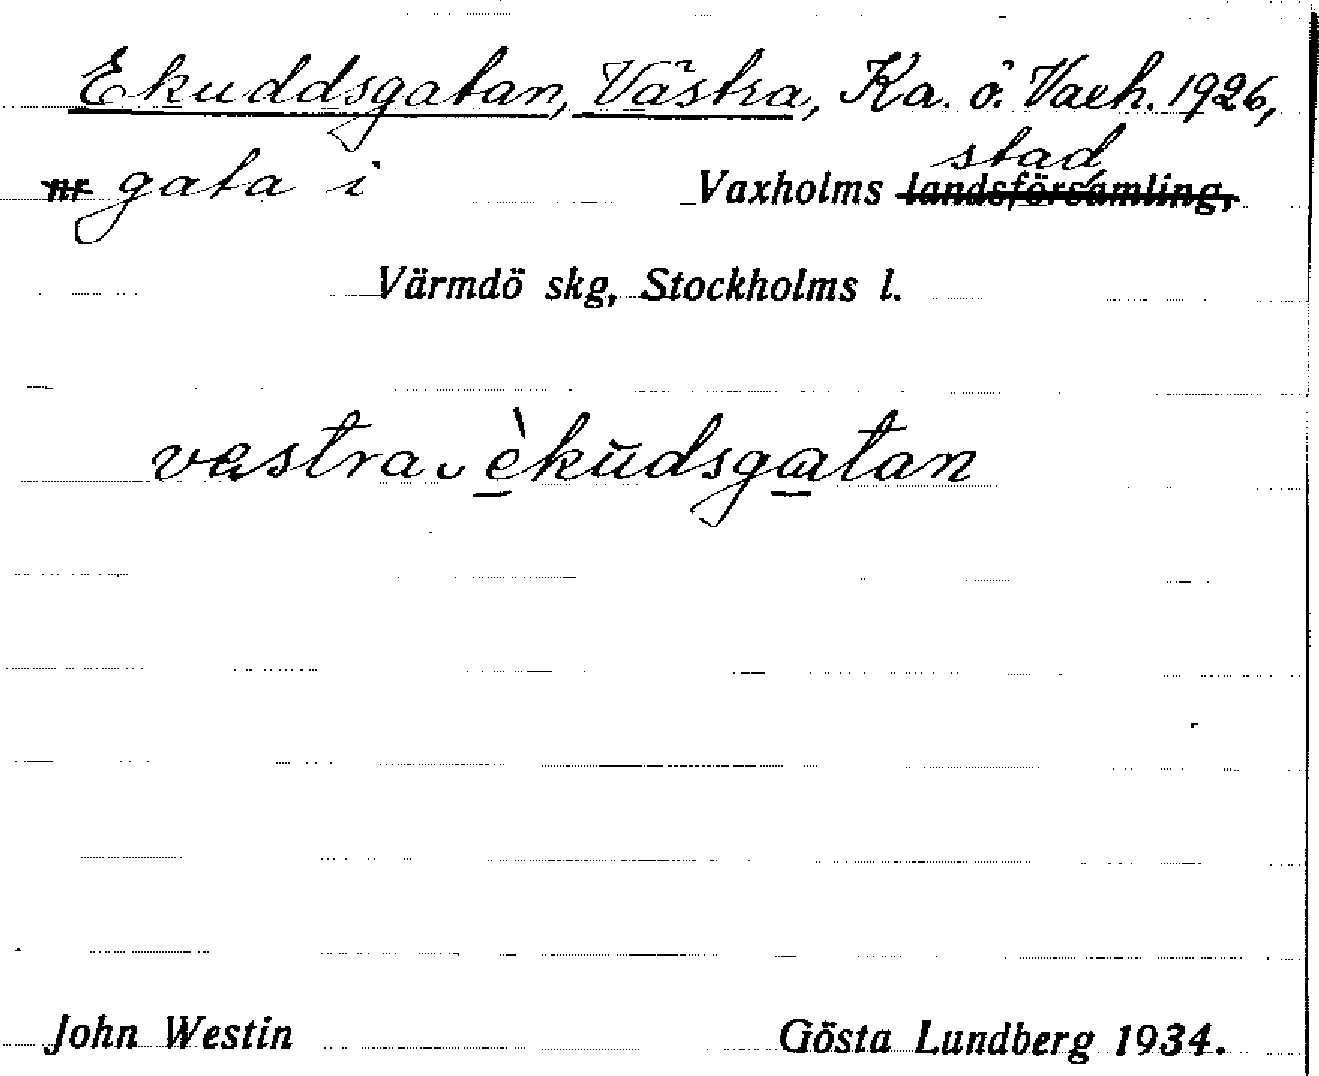 Ekuddsgatan, Västra, Ka. ö. Vaxh. 1926,
nr gata i Vaxholms landsförsamling, stad
Värmdö skg, Stockholms l.
västra èkŭdsgatan
John Westin Gösta Lundberg 1934.